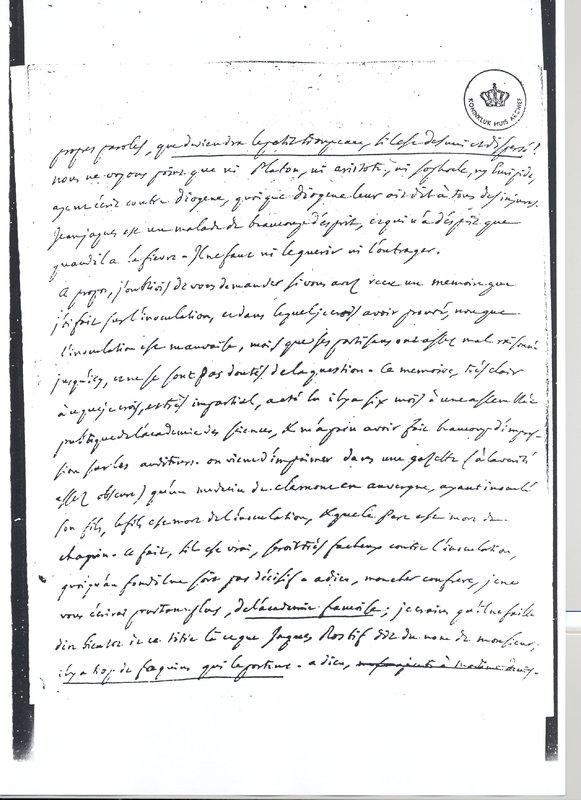 KONINKLIJK HUIS ARCHIEF
propres paroles, que deviendra le petit troupeau, s'il est desuni et dispersé?
nous ne voyons point que ni Platon, ni aristote, ni sophocle, ny Euripide,
ayent ecrit contre diogene, quoique diogene leur ait dit à tous des injures.
Jeanjaques est un malade de beaucoup d'esprit, et qui n'a d'esprit que
quand il a la fievre. Il ne faut ni le guerir ni l'outrager.
A propos, j'oubliois de vous demander si vous avez recu un memoire que
j'ai fait sur l'inoculation, et dans lequel je crois avoir prouvé, non que
l'inoculation est mauvaise, mais que ses partisans ont assez mal raisonné
jusqu'icy, et ne se sont pas doutés de la question. Ce memoire, très clair
à ce que je crois, et très impartial, a eté lu il y a six mois à une assemblée
publique de l'academie des sciences, & m'a paru avoir fait beaucoup d'impres-
sion sur les auditeurs. on vient d'imprimer dans une gazette (à la verité
assez obscure) qu'un medecin de clermont en auvergne, ayant inoculé
son fils, le fils est mort de l'inoculation, & que le pere est mort de
chagrin. Ce fait, s'il est vrai, seroit très facheux contre l'inoculation,
quoiqu'au fond il ne soit pas décisif. adieu, mon cher confrere, je ne
vous écrirai pourtant plus, de l'académie françoise; je crains qu'il ne faille
dire bientot de ce titre là ce que Jaques Rostif dit du nom de monsieur,
il y a trop de faquins qui le portent. adieu,